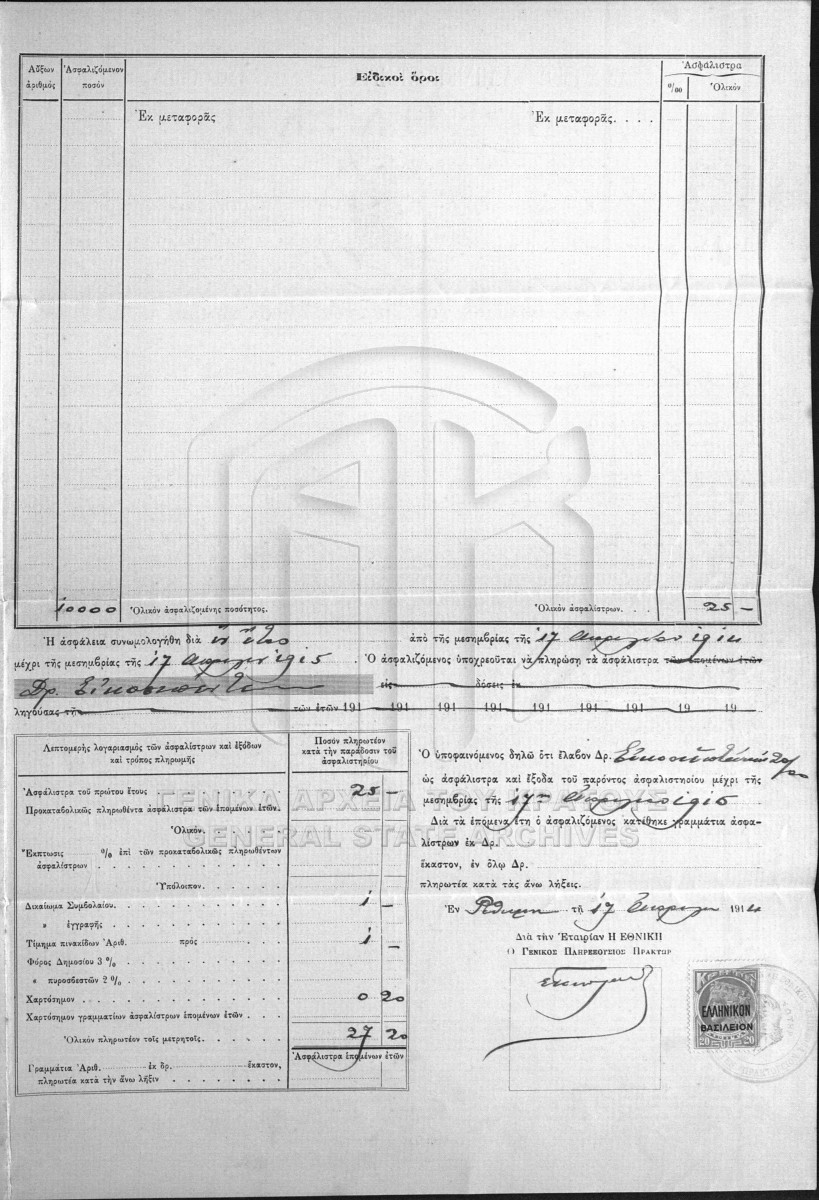 Αὔξων ἀριθμός
Ἀσφαλιζόμενον ποσόν
Εἰδικοὶ ὅροι
Ἀσφάλιστρα
0/00
Ὁλικόν
Ἐκ μεταφορᾶς
Ἐκ μεταφορᾶς. . . .
10000
Ὁλικὸν ἀσφαλιζομένης ποσότητος.
Ὁλικὸν ἀσφαλίστρων. . .
25 —
Ἡ ἀσφάλεια συνωμολογήθη διὰ ἓν ἔτος ἀπὸ τῆς μεσημβρίας τῆς 17 Ἀπριλίου 1914
μέχρι τῆς μεσημβρίας τῆς 17 Ἀπριλίου 1915. Ὁ ἀσφαλιζόμενος ὑποχρεοῦται νὰ πληρώσῃ τὰ ἀσφάλιστρα τῶν ἑπομένων ἐτῶν
Δρ. Εἰκοσιπέντε εἰς δόσεις ἐκ
ληγούσας τῇ τῶν ἐτῶν 191 191 191 191 191 191 191 19 19
Λεπτομερὴς λογαριασμὸς τῶν ἀσφαλίστρων καὶ ἐξόδων
καὶ τρόπος πληρωμῆς
Ποσὸν πληρωτέον
κατὰ τὴν παράδοσιν τοῦ
ἀσφαλιστηρίου
Ἀσφάλιστρα τοῦ πρώτου ἔτους 25 —
Προκαταβολικῶς πληρωθέντα ἀσφάλιστρα τῶν ἑπομένων ἐτῶν.
Ὁλικόν.
Ἔκπτωσις % ἐπὶ τῶν προκαταβολικῶς πληρωθέντων
ἀσφαλίστρων
Ὑπόλοιπον.
Δικαίωμα Συμβολαίου. 1 —
» ἐγγραφῆς
Τίμημα πινακίδων Ἀριθ. πρὸς 1 —
Φόρος Δημοσίου 3 %
» πυροσβεστῶν 2 %
Χαρτόσημον 0 20
Χαρτόσημον γραμματίων ἀσφαλίστρων ἑπομένων ἐτῶν
Ὁλικὸν πληρωτέον τοῖς μετρητοῖς. 27 20
Ἀσφάλιστρα ἑπομένων ἐτῶν
Γραμμάτια Ἀριθ. ἐκ δρ. ἕκαστον,
πληρωτέα κατὰ τὴν ἄνω λῆξιν
Ὁ ὑποφαινόμενος δηλῶ ὅτι ἔλαβον Δρ. Εἰκοσιεπτὰ καὶ 20/00
ὡς ἀσφάλιστρα καὶ ἔξοδα τοῦ παρόντος ἀσφαλιστηρίου μέχρι τῆς
μεσημβρίας τῆς 17ης Ἀπριλίου 1915
Διὰ τὰ ἑπόμενα ἔτη ὁ ἀσφαλιζόμενος κατέθηκε γραμμάτια ἀσφα-
λίστρων ἐκ Δρ.
ἕκαστον, ἐν ὅλῳ Δρ.
πληρωτέα κατὰ τὰς ἄνω λήξεις.
Ἐν Ρεθύμνῃ τῇ 17 Ἀπριλίου 1914
Διὰ τὴν Ἑταιρίαν Η ΕΘΝΙΚΗ
Ο ΓΕΝΙΚΟΣ ΠΛΗΡΕΞΟΥΣΙΟΣ ΠΡΑΚΤΩΡ
ΕΛΛΗΝΙΚΟΝ
ΒΑΣΙΛΕΙΟΝ
20 20
ΓΕΝΙΚΑ ΑΡΧΕΙΑ ΤΟΥ ΚΡΑΤΟΥΣ
GENERAL STATE ARCHIVES